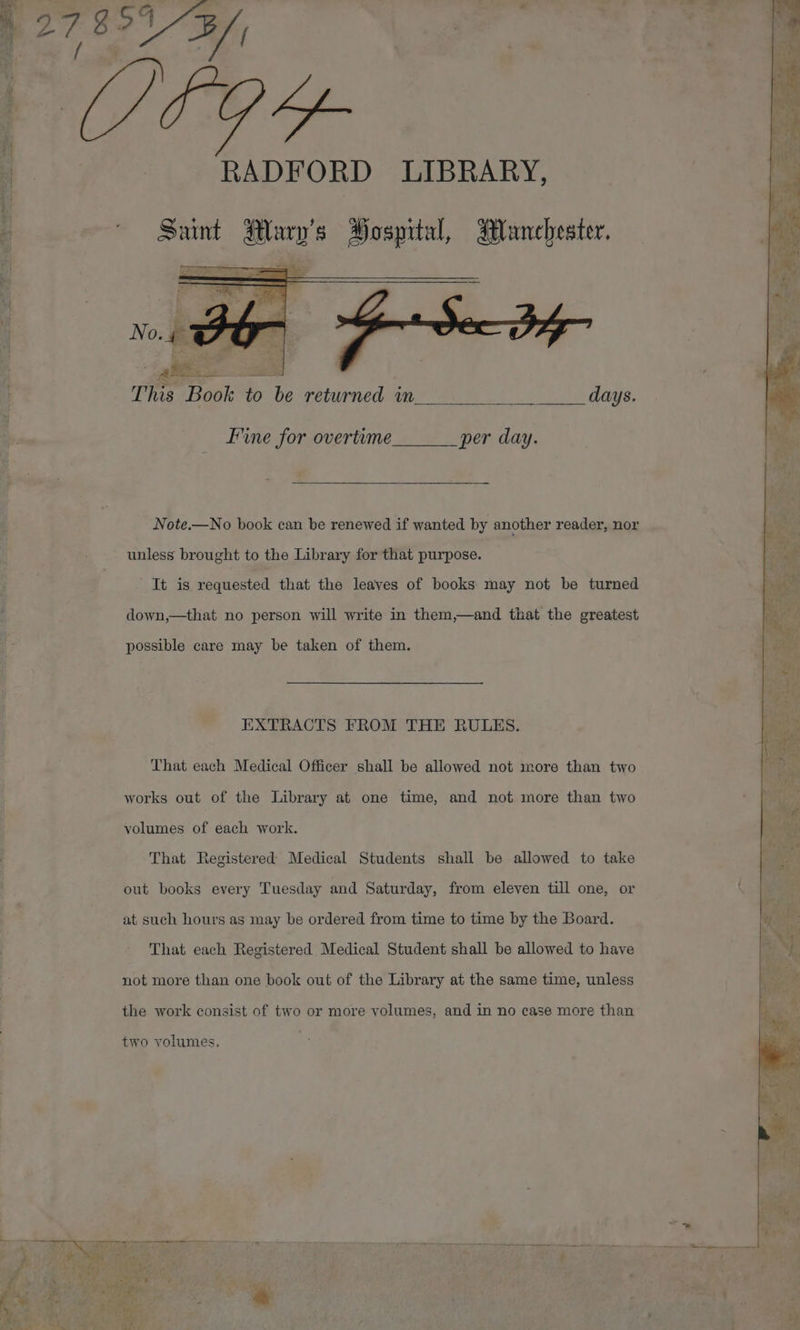 27859/B/1
RADFORD LIBRARY,
Saint Mary's Hospital, Manchester.
No. 36 G. Sec 34
This Book to be returned in ________ days.
Fine for overtime ______ per day.
Note.—No book can be renewed if wanted by another reader, nor
unless brought to the Library for that purpose.
It is requested that the leaves of books may not be turned
down,—that no person will write in them,—and that the greatest
possible care may be taken of them.
EXTRACTS FROM THE RULES.
That each Medical Officer shall be allowed not more than two
works out of the Library at one time, and not more than two
volumes of each work.
That Registered Medical Students shall be allowed to take
out books every Tuesday and Saturday, from eleven till one, or
at such hours as may be ordered from time to time by the Board.
That each Registered Medical Student shall be allowed to have
not more than one book out of the Library at the same time, unless
the work consist of two or more volumes, and in no case more than
two volumes.